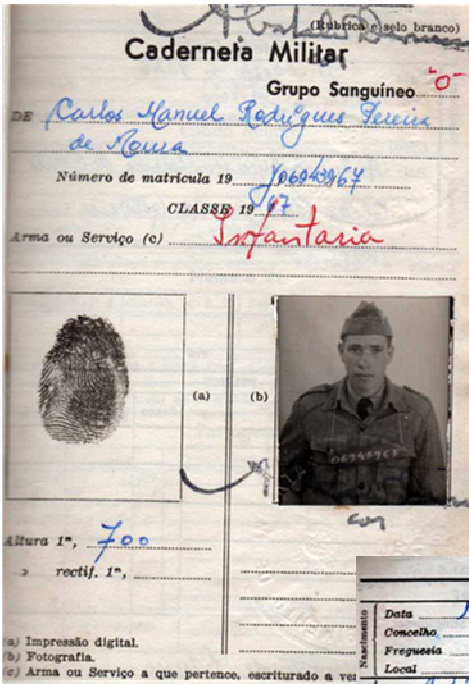 (Rubrica e selo branco)
Caderneta Militar
Grupo Sanguíneo "O"
DE Carlos Manuel Rodrigues Pereira
de Moura
Número de matrícula 19 06943967
CLASSE 19 67
Arma ou Serviço (c) Infantaria
(a)
(b)
06943967
Altura 1m, 700
» rectif. 1m,
(a) Impressão digital.
(b) Fotografia.
(c) Arma ou Serviço a que pertence, escriturado a ver
Nascimento
Data
Concelho
Freguesia
Local